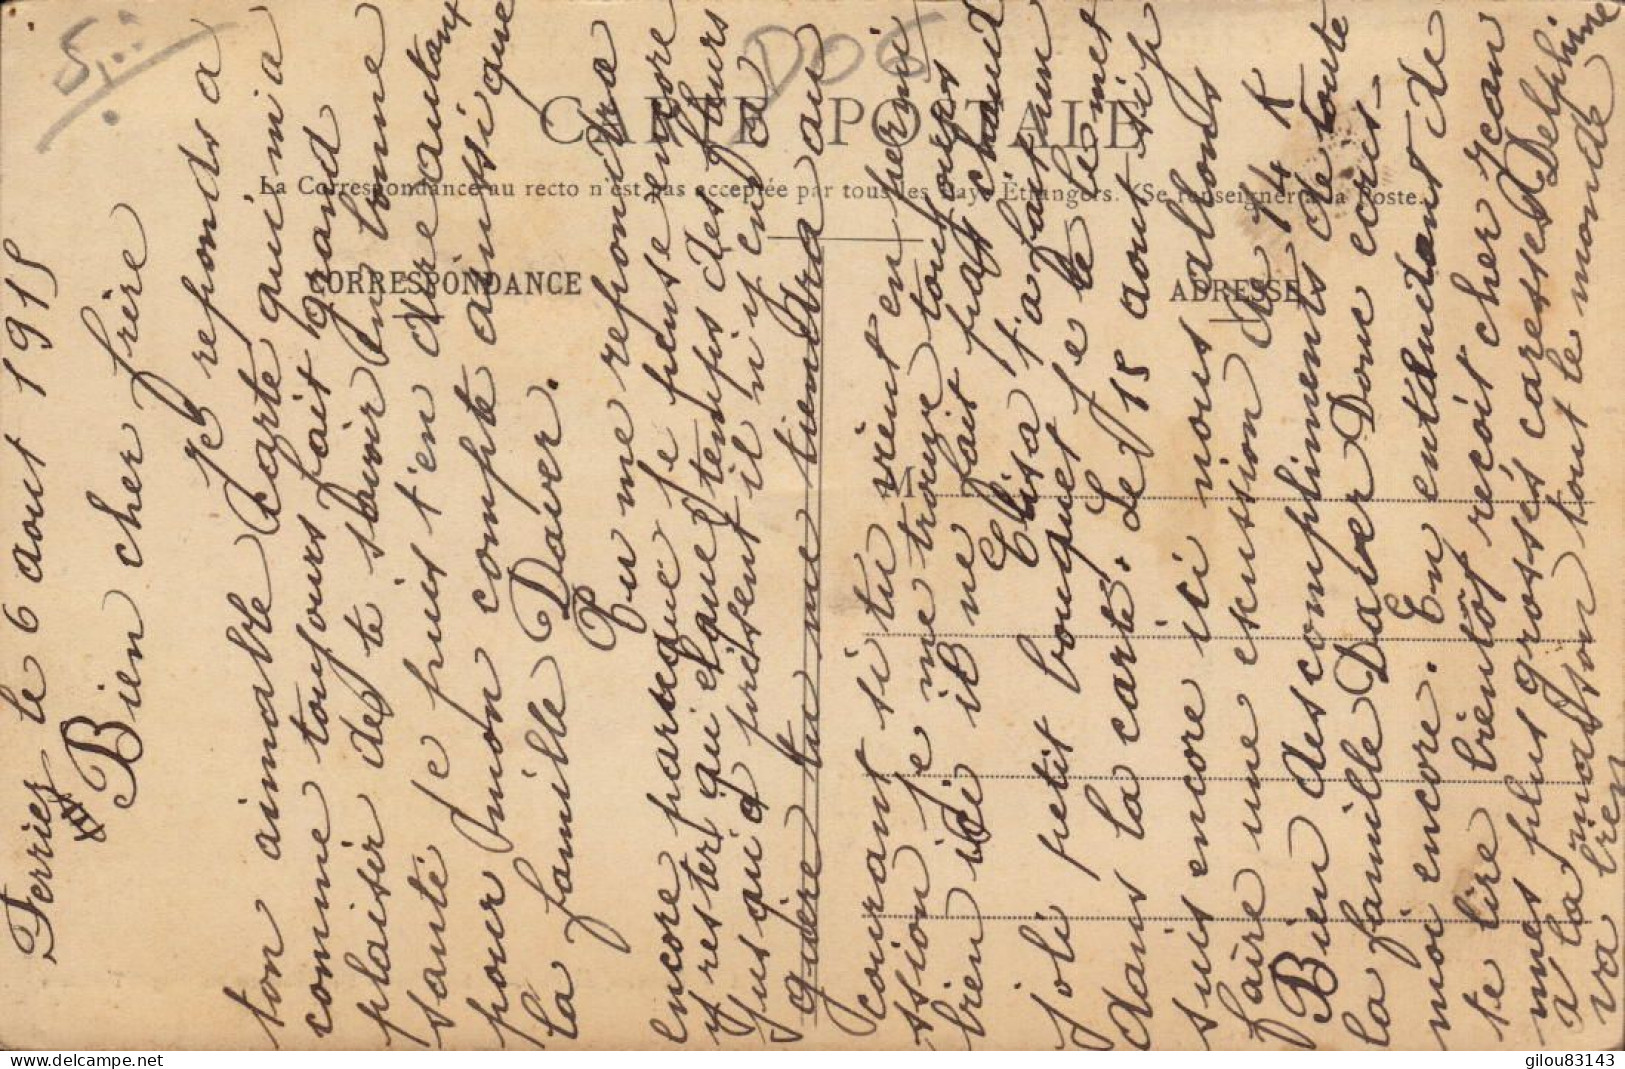 CARTE POSTALE
La Correspondance au recto n'est pas acceptée par tous les Pays Etrangers. (Se renseigner à la Poste.)
CORRESPONDANCE
ADRESSE
M
5
DOS
Ferrier le 6 aout 1915
Bien cher frère
Je reponds a
ton aimable carte qui m'a
comme toujours fait grand
plaisir de te savoir en bonne
santé je puis t'en dire autant
pour mon compte aussi que
la famille Daver.
Tu me repondra
encore parceque je pense encore
y rester quelque temps des jours
jusqu'a présent il n'y en a
guère tu me tiendra au
courant si tu vient en permi
ssion je me trouve toujours
bien ici il ne fait pas chaud
Elisa t'a fait un
joli petit bouquet je te le met
dans la carte. Le 15 aout si j'y
suis encore ici nous allons
faire une escussion de 14 K
Bien des compliments de toute
la famille Daver Donc
moi encore. En entendant de
te lire bientôt reçoit cher Jean
mes plus grosses caresses Delphine
a la maison tout le monde
va bien
delcampe.net
gilou83143